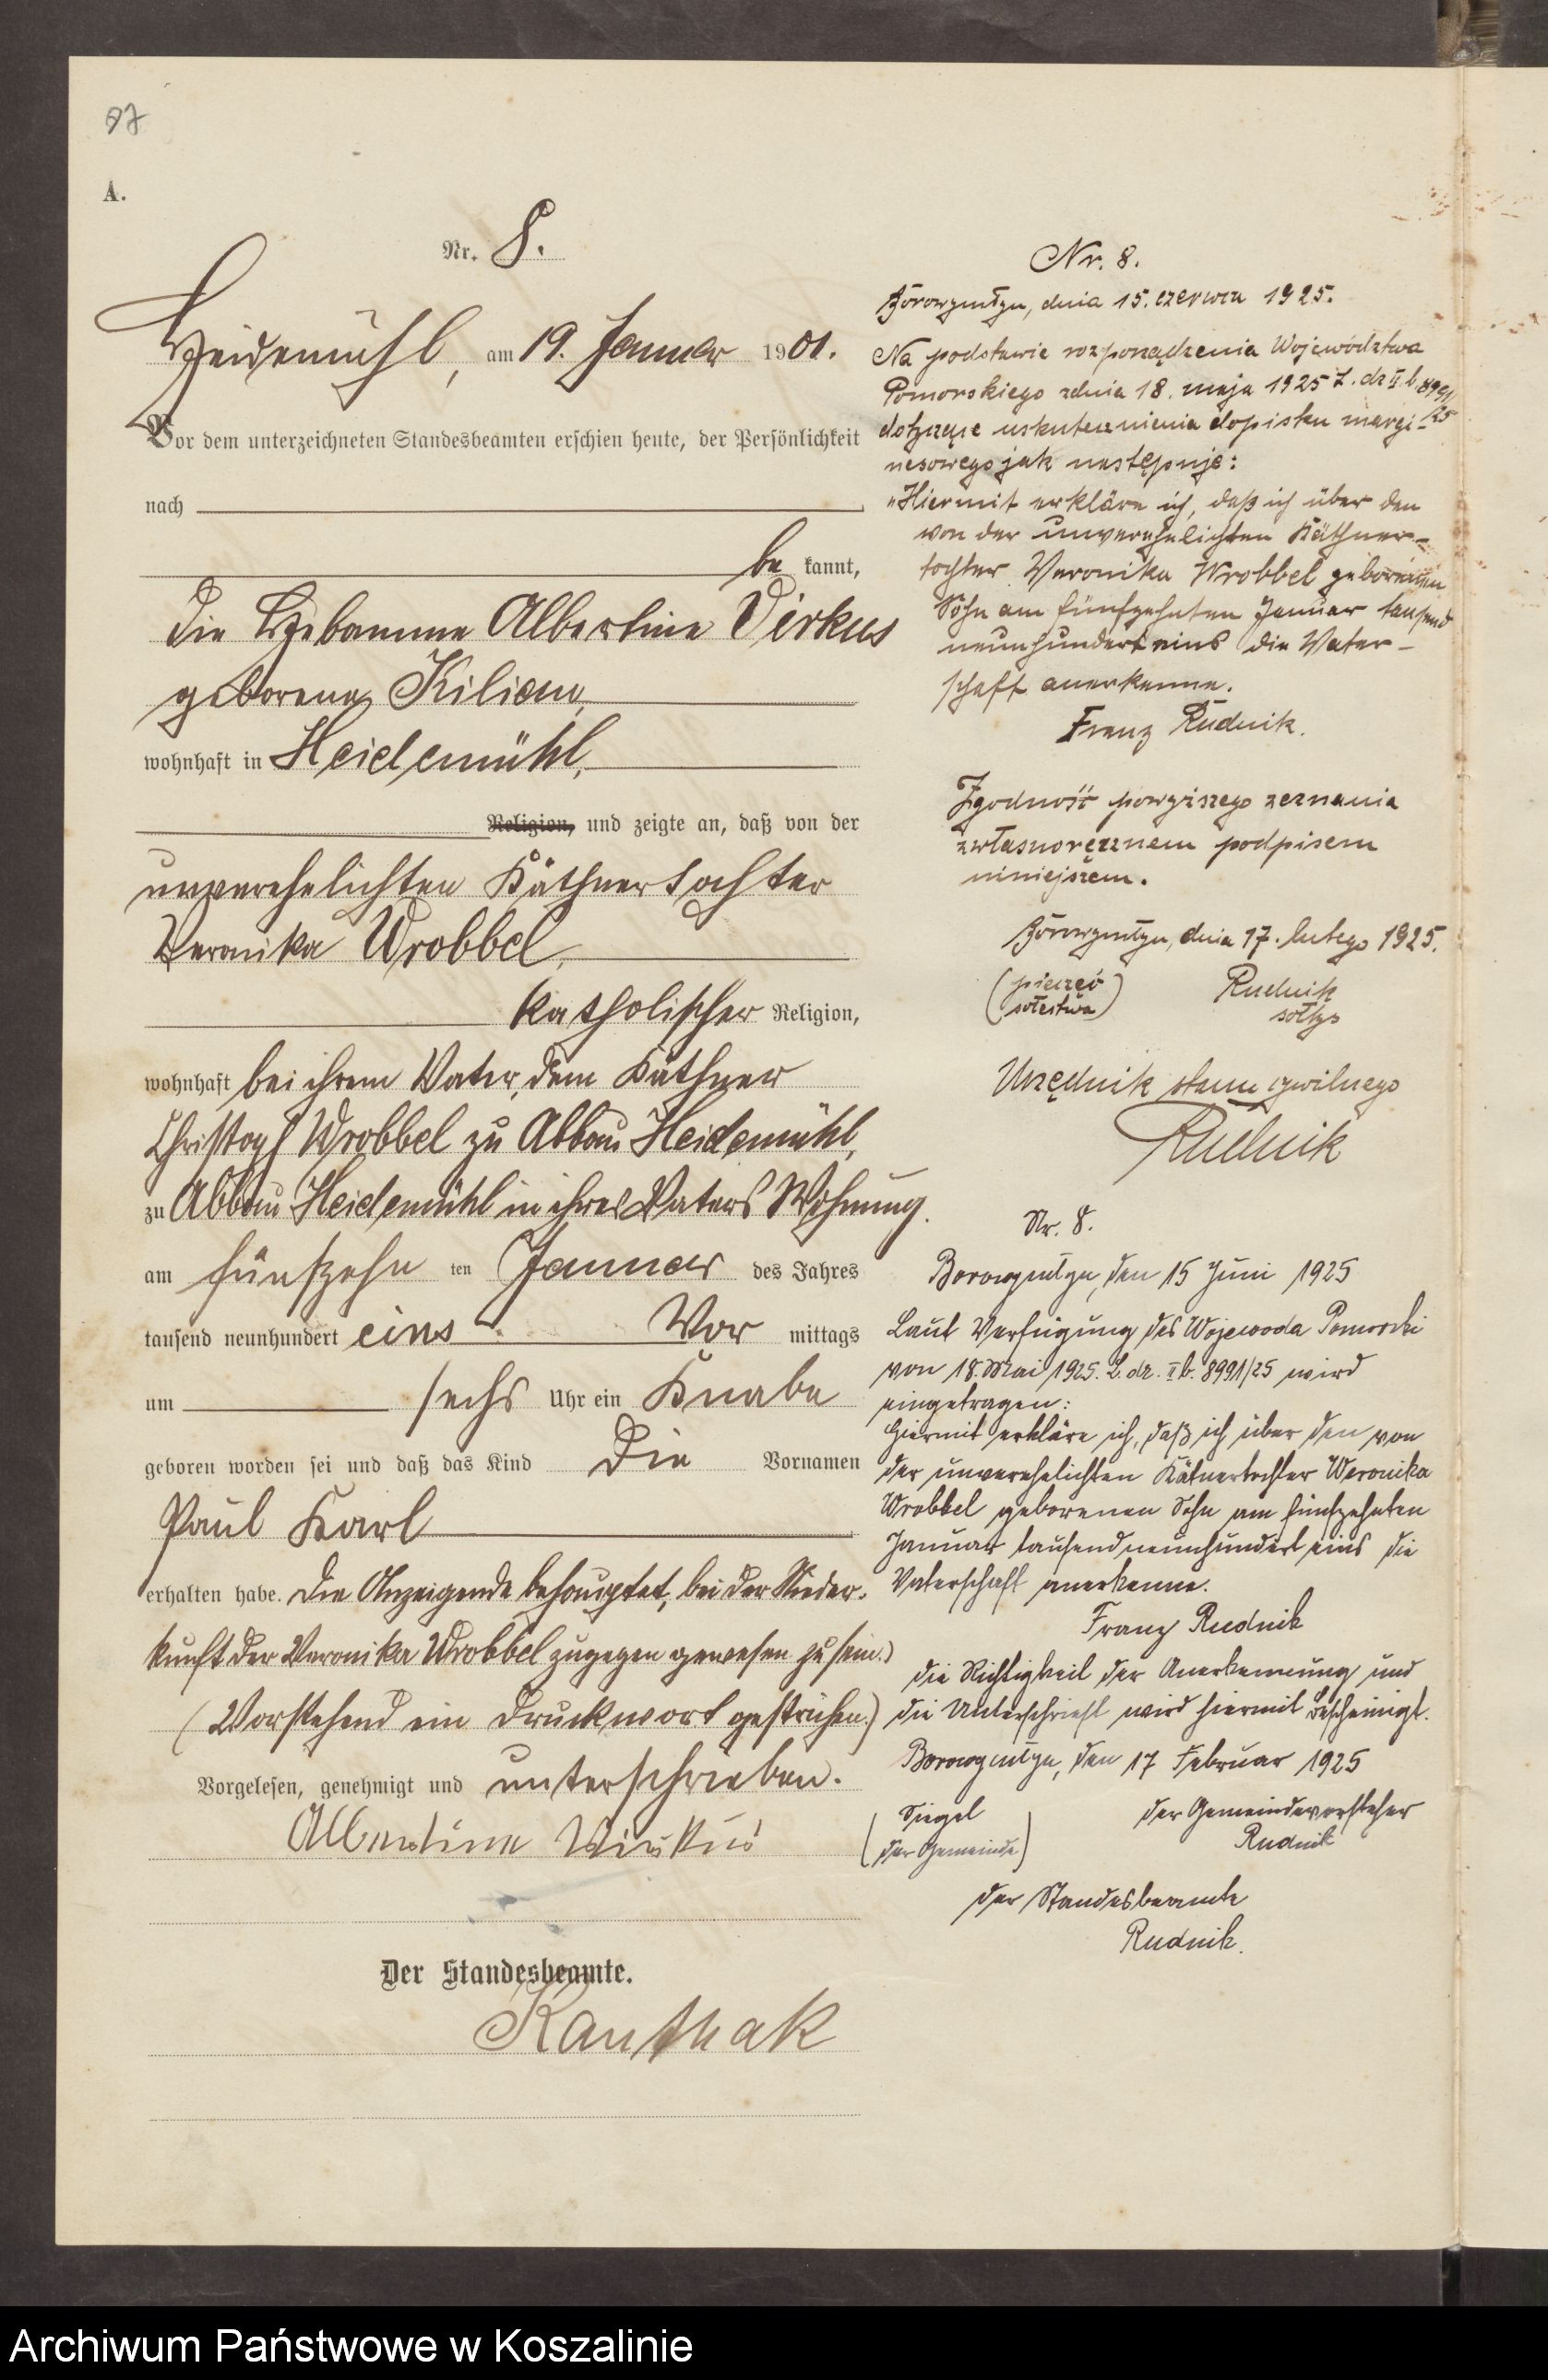 97
A.
Nr. 8.
Heidemühl, am 19. Januar 1901.
Vor dem unterzeichneten Standesbeamten erschien heute, der Persönlichkeit
nach
be kannt,
die Hebamme Albertine Virkus
geborene Kilian,
wohnhaft in Heidemühl,
Religion, und zeigte an, daß von der
unverehelichten Käthnertochter
Veronika Wrobbel,
katholischer Religion,
wohnhaft bei ihrem Vater, dem Käthner
Christoph Wrobbel zu Abbau Heidemühl,
zu Abbau Heidemühl in ihres Vaters Wohnung.
am fünfzehn ten Januar des Jahres
tausend neunhundert eins Vor mittags
um sechs Uhr ein Knabe
geboren worden sei und daß das Kind die Vornamen
Paul Karl
erhalten habe. Die Anzeigende behauptet, bei der Nieder-
kunft der Veronika Wrobbel zugegen gewesen zu sein.)
(Vorstehend ein Druckwort gestrichen.)
Vorgelesen, genehmigt und unterschrieben.
Albertine Wirkus
Der Standesbeamte.
Kanthak
Nr. 8.
Borowymłyn, dnia 15. czerwca 1925.
Na podstawie rozporządzenia Województwa
Pomorskiego zdnia 18. maja 1925 L. dz II. b. 8991/25
dotyczące uskutecznienia dopisku margi-
nesowego jak następuje:
„Hiermit erkläre ich, daß ich über den
von der unverehelichten Käthner-
tochter Veronika Wrobbel geborenen
Sohn am fünfzehnten Januar tausend
neunhundert eins die Vater-
schaft anerkenne.
Franz Rudnik.
Zgodność powyższego zeznania
zwłasnoręcznem podpisem
niniejszem.
Borowymłyn, dnia 17. lutego 1925.
(pieczęć Rudnik
sołectwa) sołtys
Urzędnik stanu cywilnego
Rudnik
Nr. 8.
Borowymłyn, den 15 Juni 1925
Laut Verfügung des Wojewoda Pomorski
von 18. Mai 1925. L. dz. II b. 8991/25 wird
eingetragen:
Hiermit erkläre ich, daß ich über den von
der unverehelichten Kätnertochter Weronika
Wrobbel geborenen Sohn am fünfzehnten
Januar tausendneunhundert eins die
Vaterschaft anerkenne.
Franz Rudnik
Die Richtigkeit der Anerkennung und
die Unterschrieft wird hiermit bescheinigt.
Borowymłyn, den 17 Februar 1925
(Siegel der Gemeindevorsteher
der Gemeinde) Rudnik
der Standesbeamte
Rudnik.
Archiwum Państwowe w Koszalinie